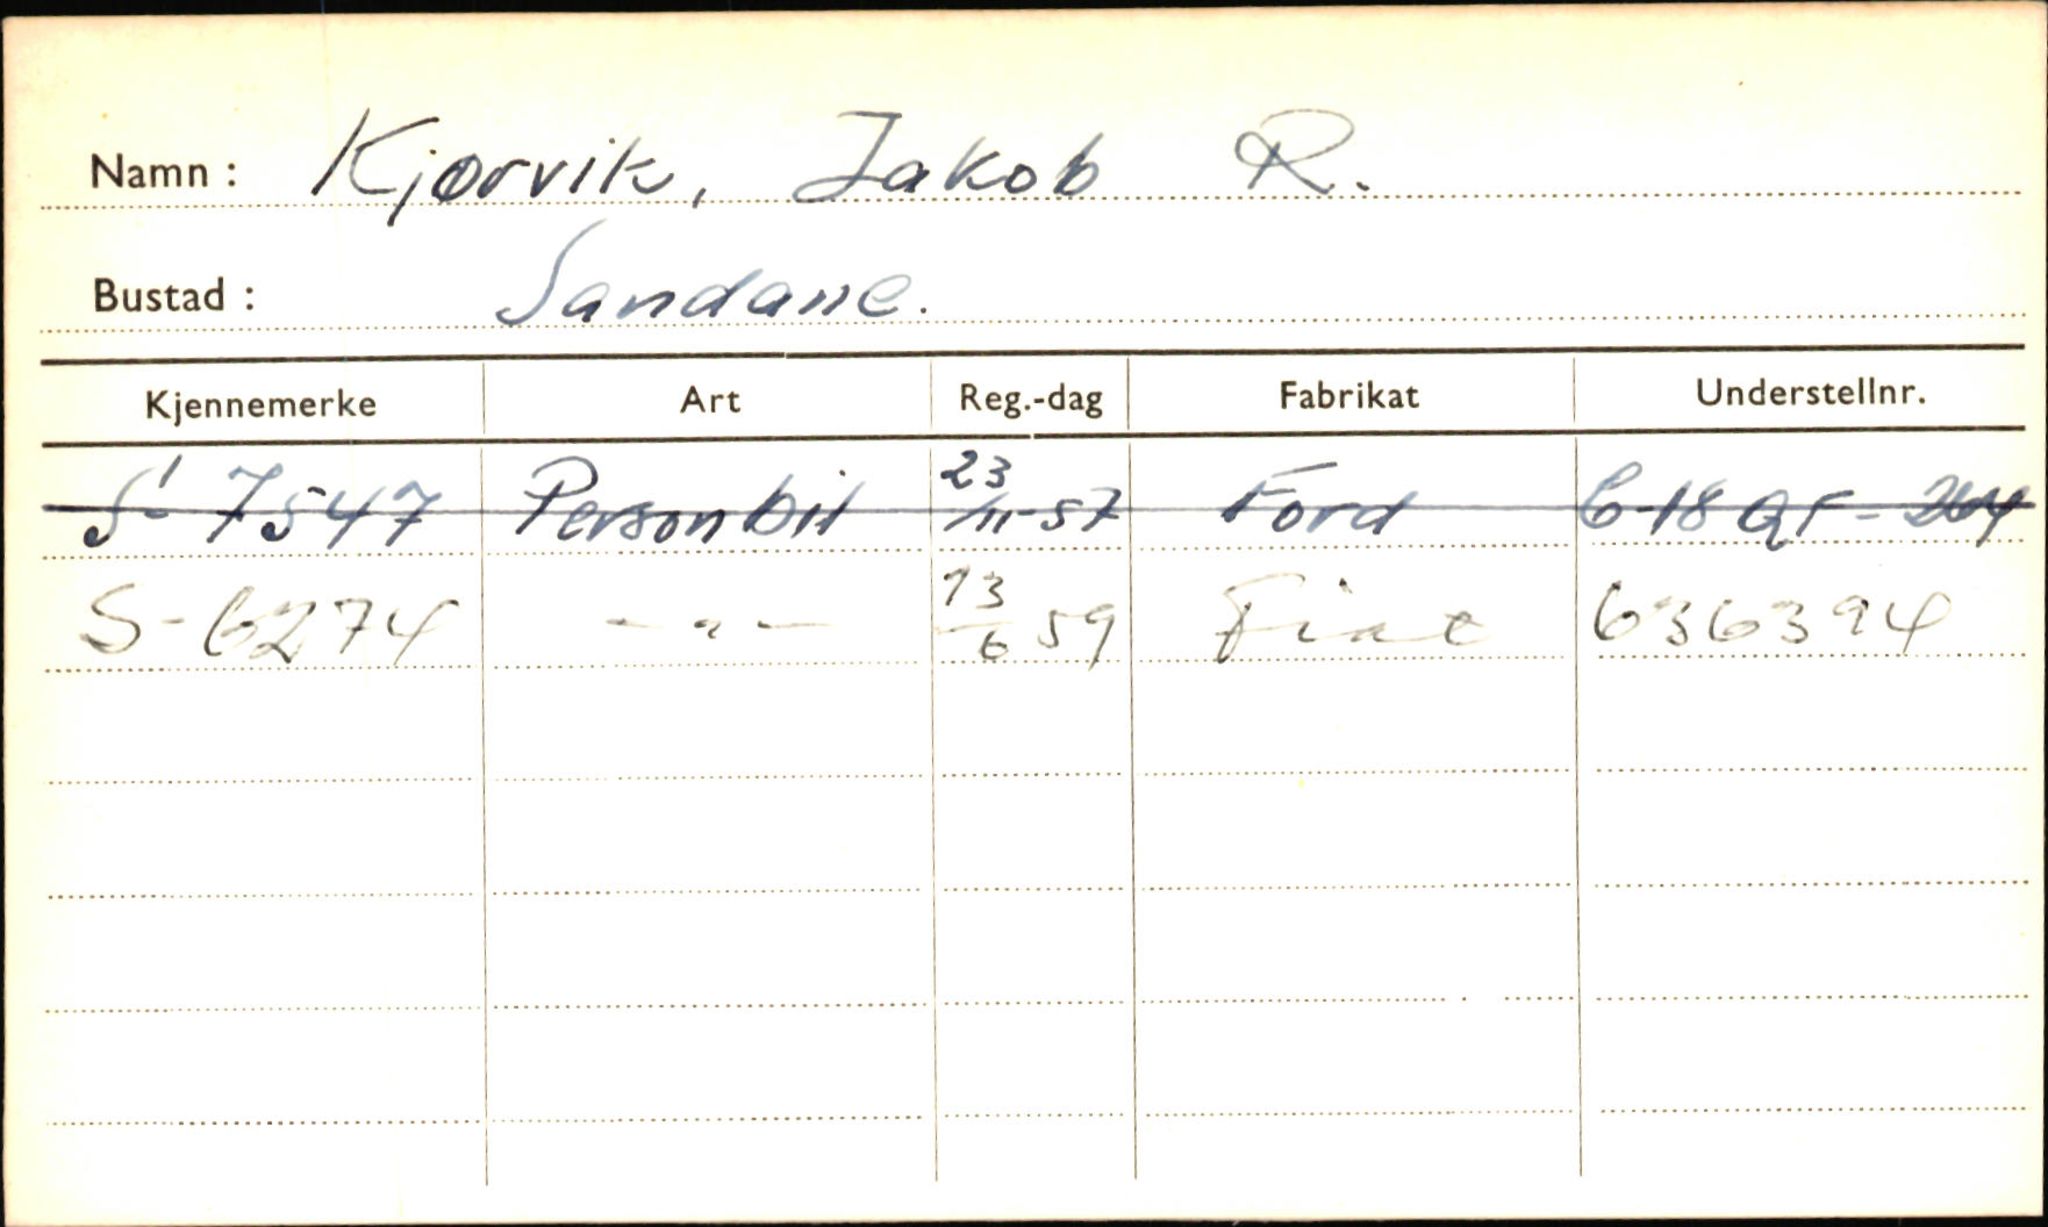 Namn : Kjørvik, Jakob R.
Bustad : Sandane.
Kjennemerke Art Reg.-dag Fabrikat Understellnr.
S-7547 Personbil 23/11-57 Ford C-18 QF-
S-6274 -"- 13/6 59 Fiat 636394